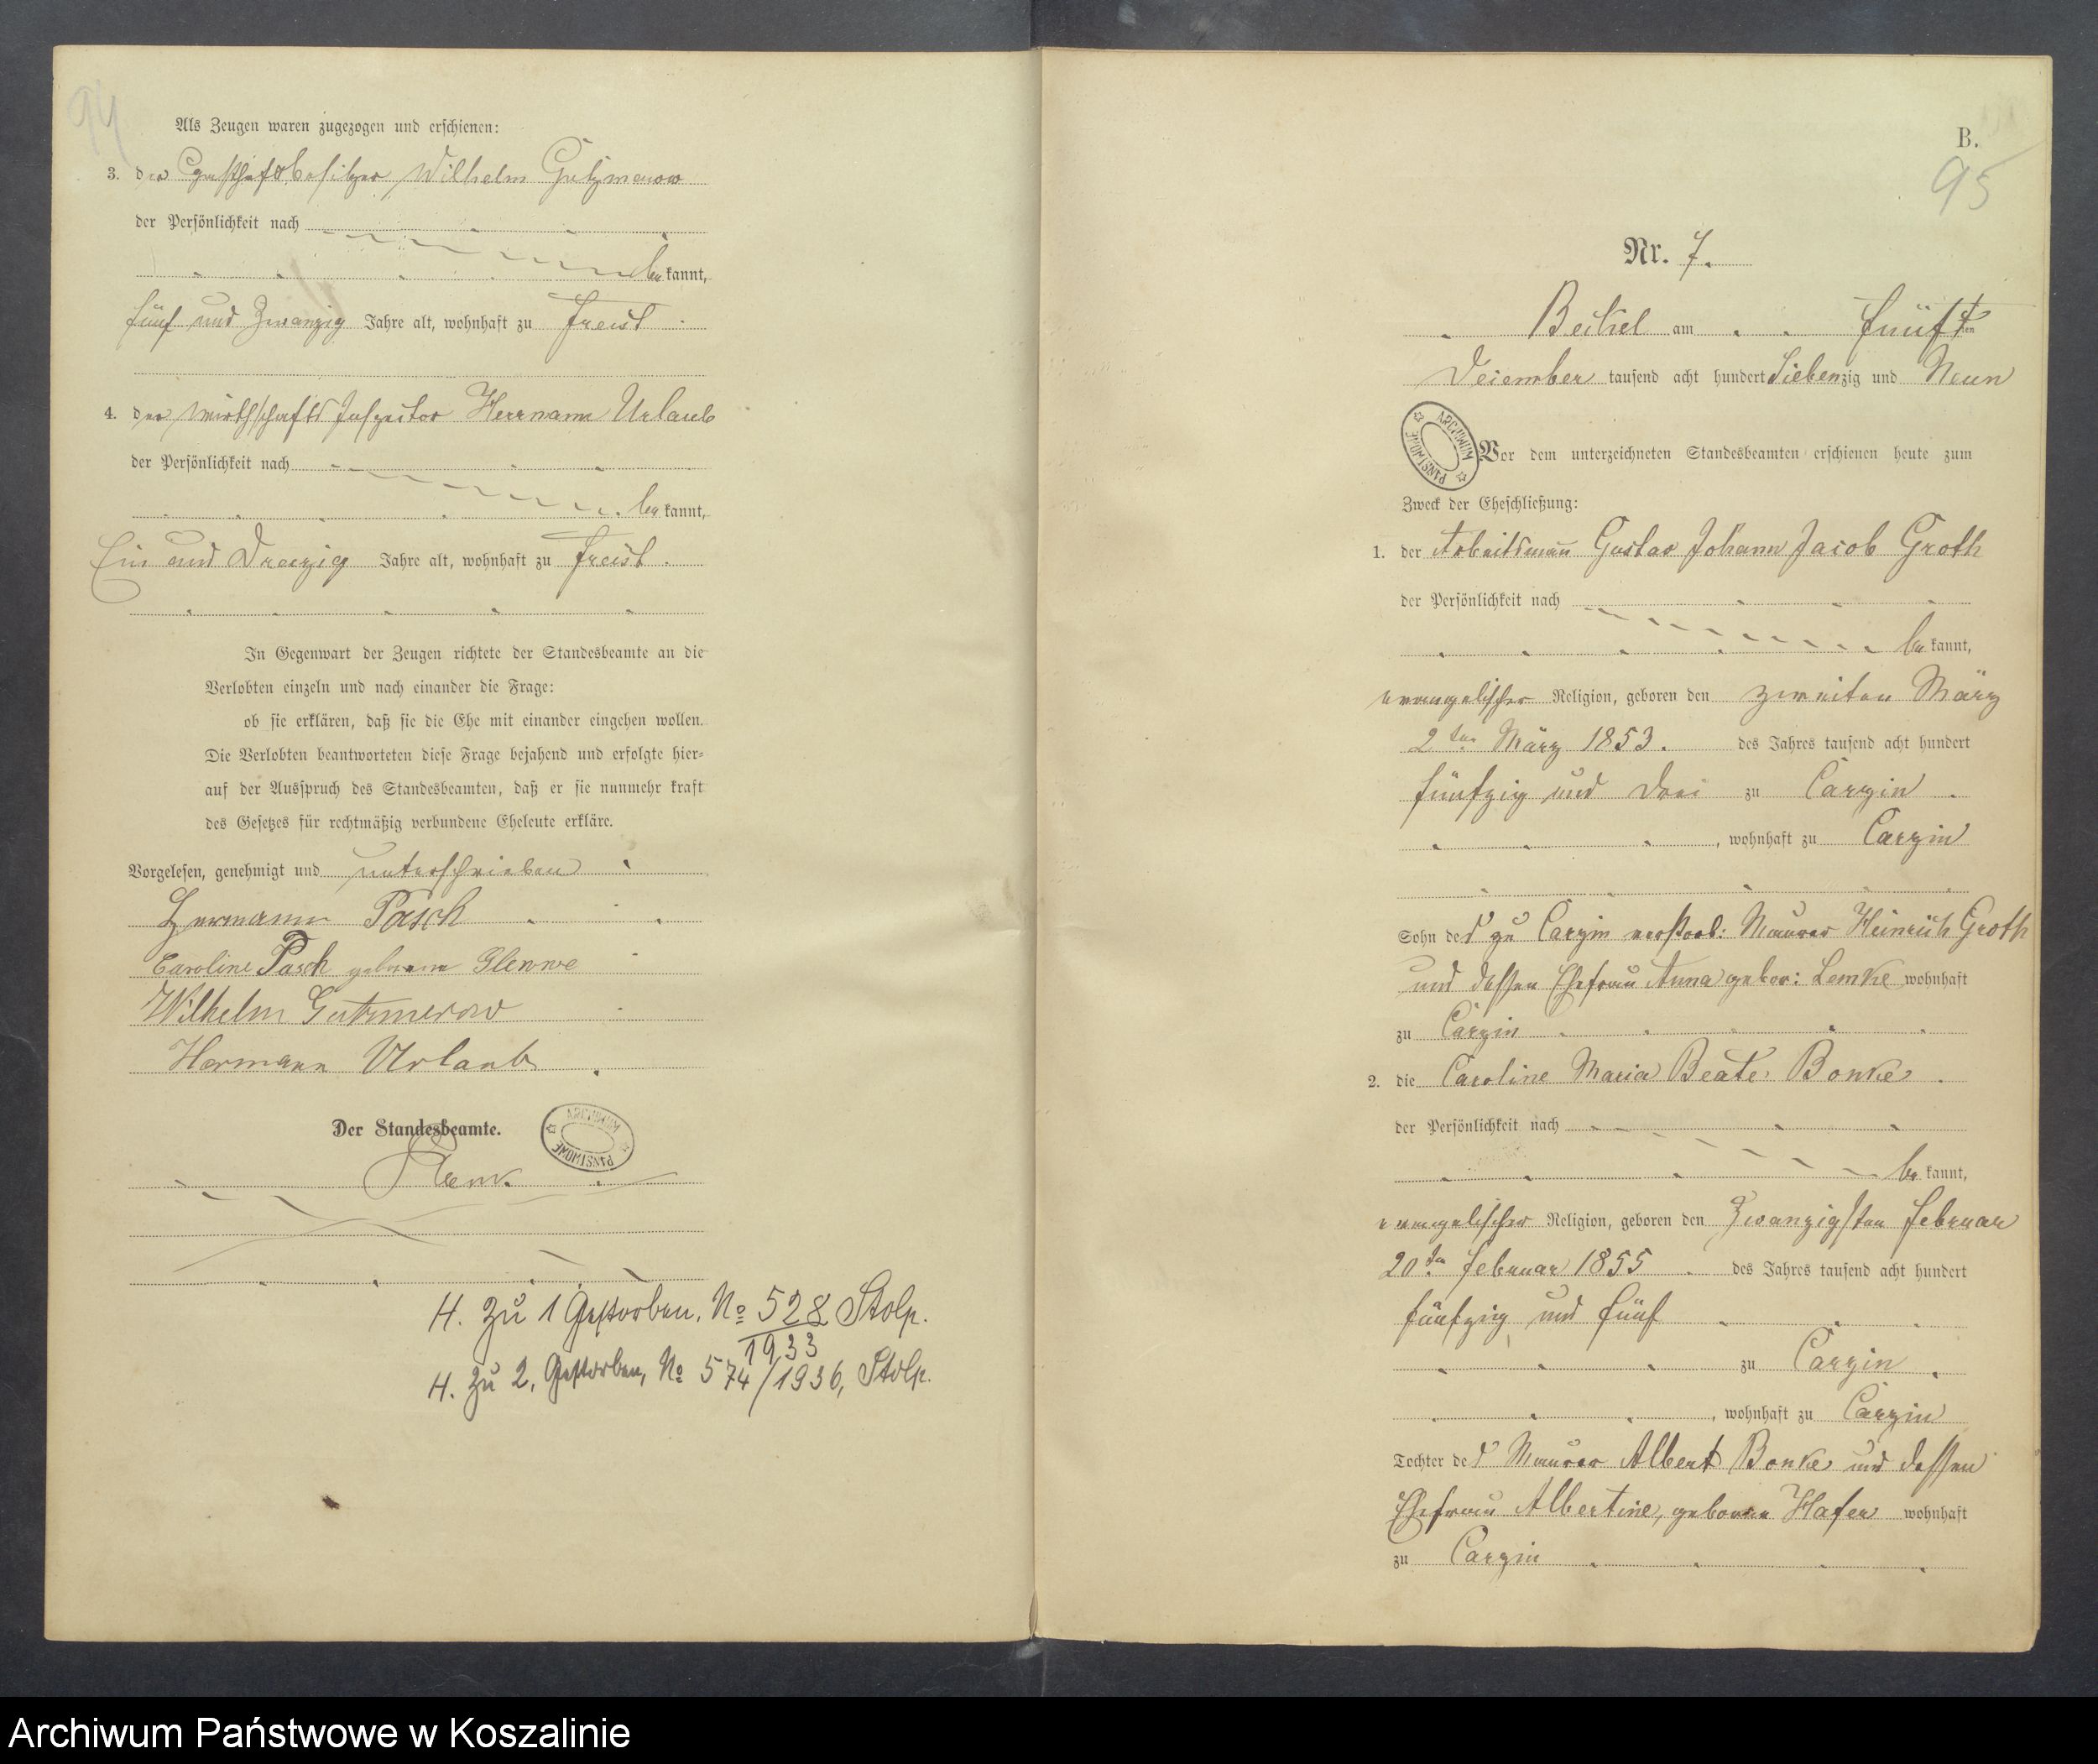 94
Als Zeugen waren zugezogen und erschienen:
3. der Geschäftsbesitzer Wilhelm Gutzmerow
der Persönlichkeit nach
bekannt,
fünf und Zwanzig Jahre alt, wohnhaft zu Freist
4. der Wirthschafts Inspector Herrmann Urlaub
der Persönlichkeit nach
bekannt,
Ein und Dreizig Jahre alt, wohnhaft zu Freist.
In Gegenwart der Zeugen richtete der Standesbeamte an die
Verlobten einzeln und nach einander die Frage:
ob sie erklären, daß sie die Ehe mit einander eingehen wollen.
Die Verlobten beantworteten diese Frage bejahend und erfolgte hier-
auf der Ausspruch des Standesbeamten, daß er sie nunmehr kraft
des Gesetzes für rechtmäßig verbundene Eheleute erkläre.
Vorgelesen, genehmigt und unterschrieben
Hermann Pasch
Caroline Pasch geborene
Wilhelm Gutzmerow
Hermann Urlaub
Der Standesbeamte.
ARCHIWUM PAŃSTWOWE
H. Zu 1 Gestorben. No 528 Stolp.
1933
H. Zu 2, Gestorben, No 574/1936, Stolp.
B.
95
Nr. 7.
Beckel am fünften
Decemb​er tausend acht hundert Siebenzig und Neun
ARCHIWUM PAŃSTWOWE
Vor dem unterzeichneten Standesbeamten erschienen heute zum
Zweck der Eheschließung:
1. der Arbeitsmann Gustav Johann Jacob Groth
der Persönlichkeit nach
bekannt,
evangelischer Religion, geboren den zweiten März
2ten März 1853. des Jahres tausend acht hundert
fünfzig und drei zu Carzin
, wohnhaft zu Carzin
Sohn des zu Carzin verstorb: Maurer Heinrich Groth
und dessen Ehefrau Anna gebor: Lemke wohnhaft
zu Carzin
2. die Caroline Maria Beate Bonke
der Persönlichkeit nach
bekannt,
evangelischer Religion, geboren den Zwanzigsten Februar
20ten Februar 1855 des Jahres tausend acht hundert
fünfzig und fünf
zu Carzin
, wohnhaft zu Carzin
Tochter des Maurer Albert Bonke und dessen
Ehefrau Albertine, geborene Hafer wohnhaft
zu Carzin
Archiwum Państwowe w Koszalinie